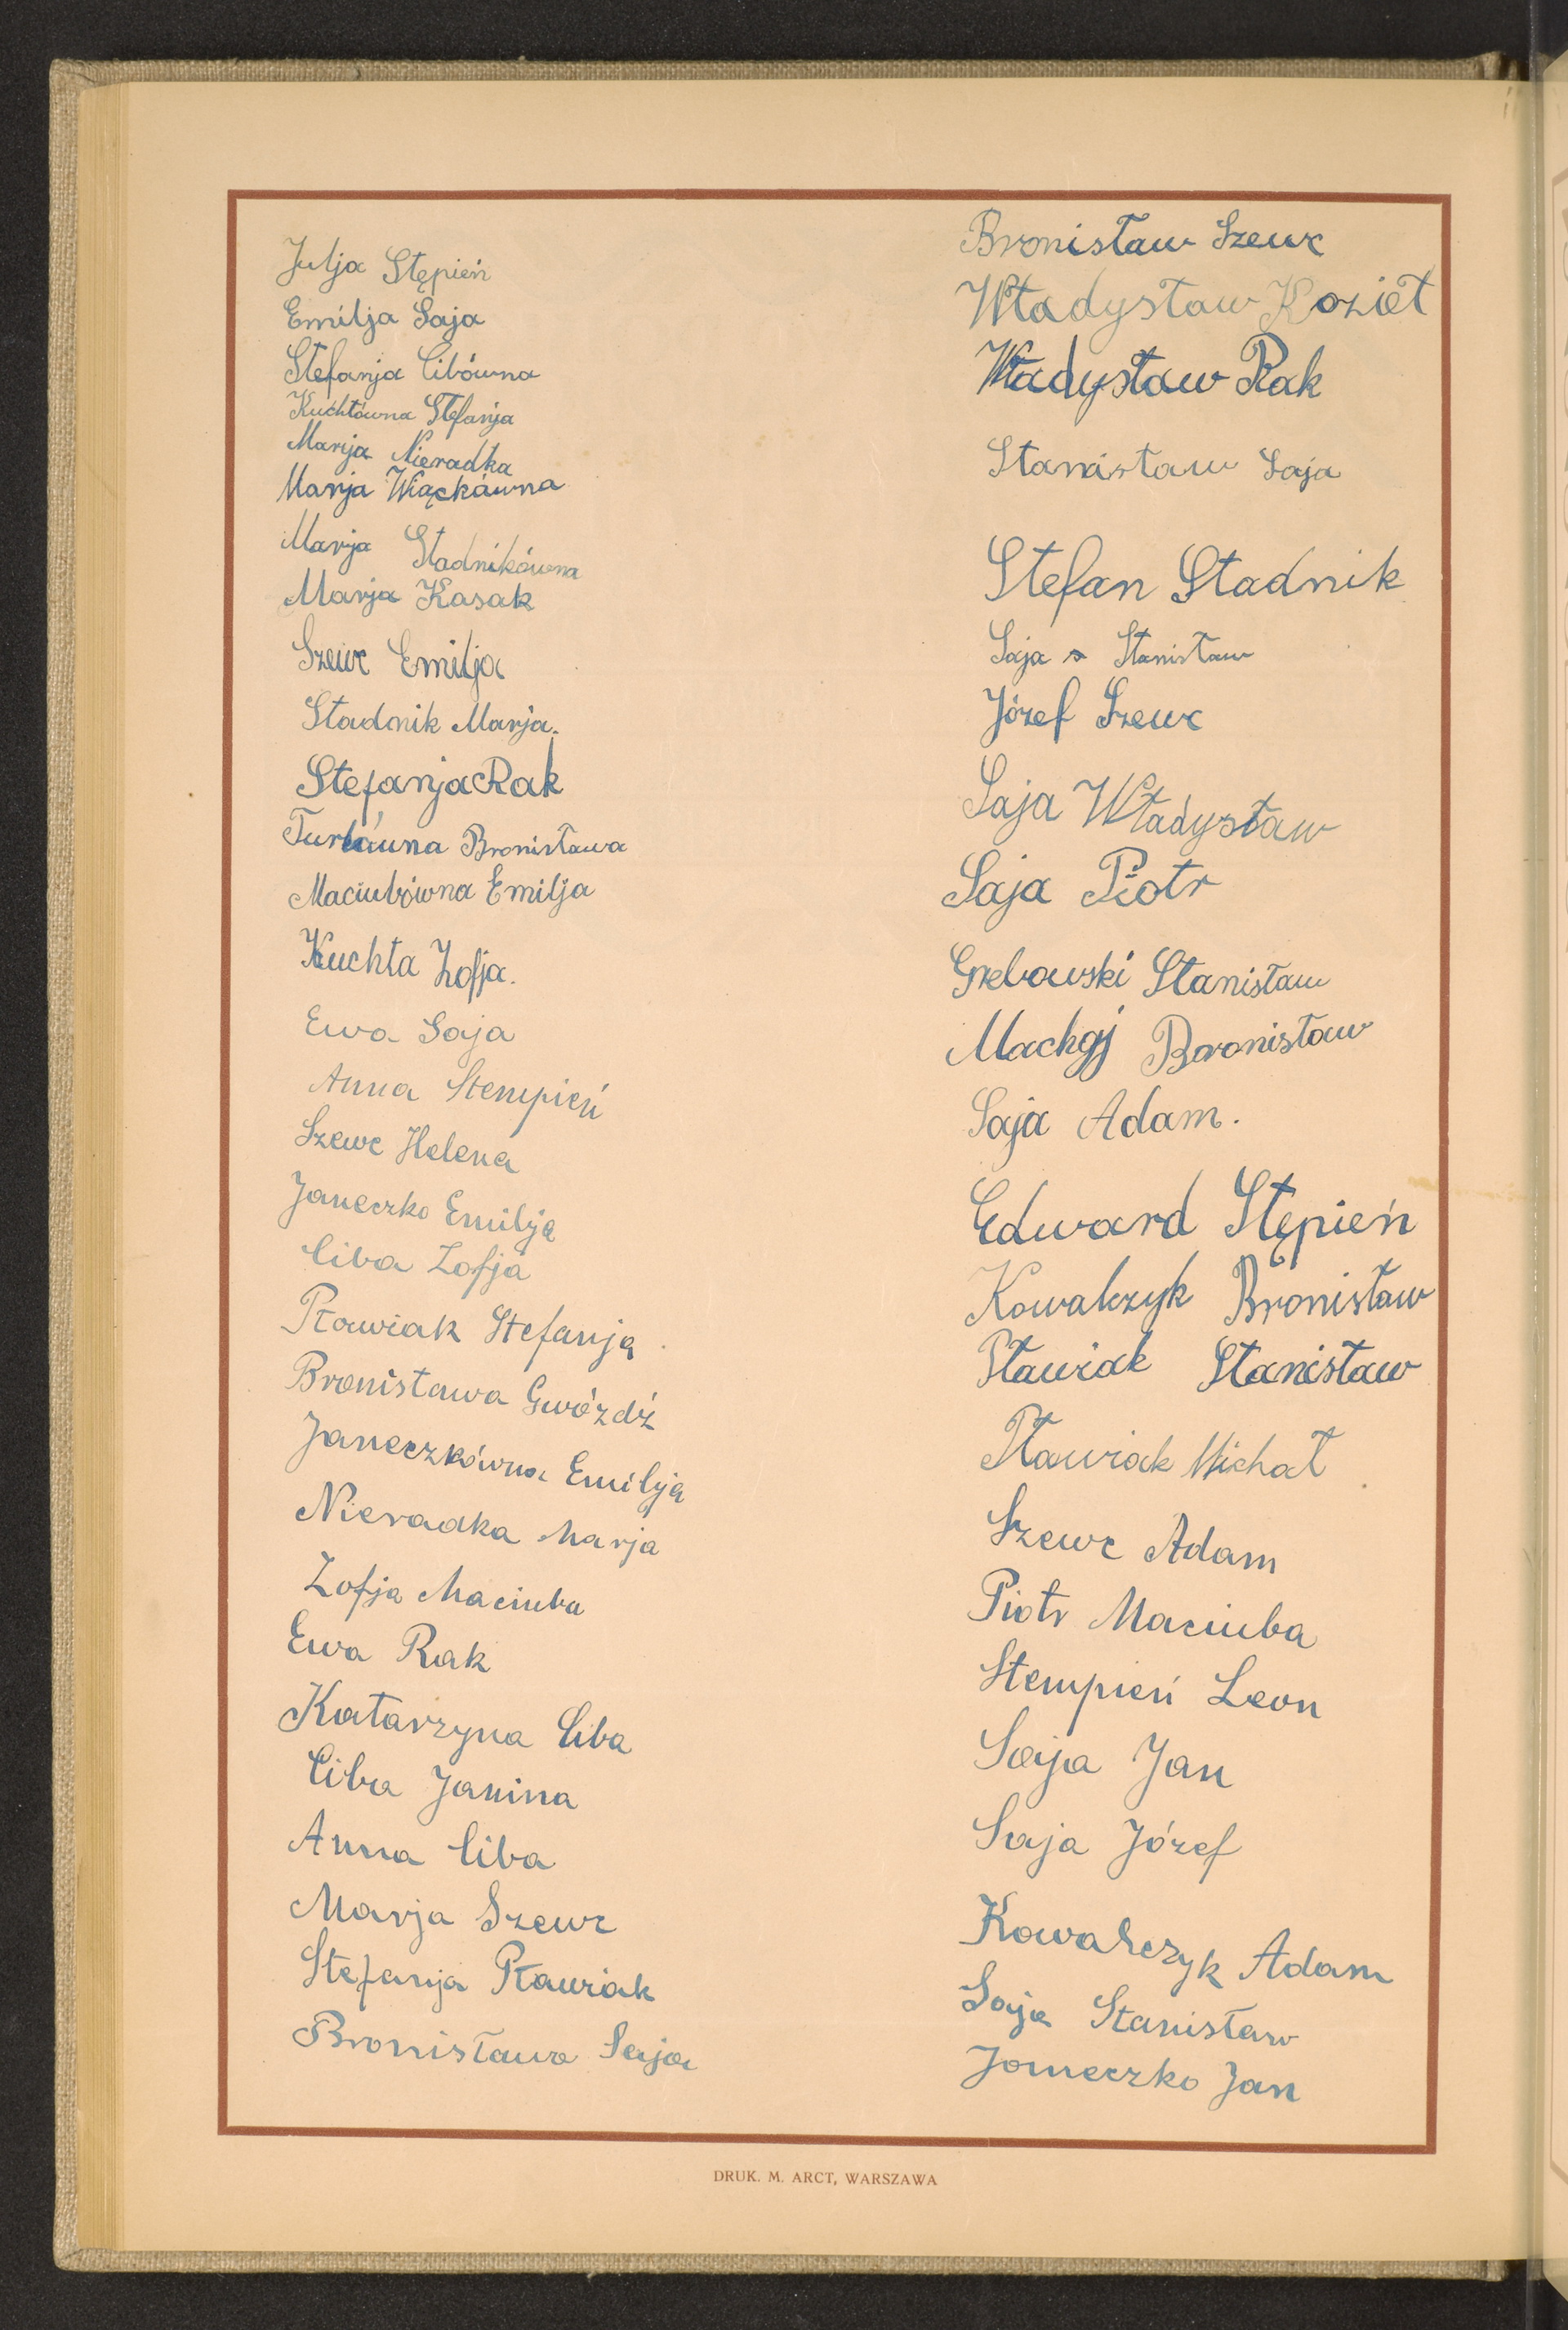 Julja Stępień
Emilja Saja
Stefanja Cibówna
Kuchtówna Stefanja
Marija Nieradka
Marja Wiąckówna
Marja Stadnikówna
Marja Kasak
Szewc Emilja
Stadnik Marja.
Stefanja Rak
Bronisława
Maciubówna Emilja
Kuchta Zofja.
Ewa Saja
Anna Stempień
Szewc Helena
Janeczko Emilja
Ciba Zofja
Pławiak Stefanja
Bronisława Gwóźdź
Janeczkówna Emilja
Nieradka Marja
Zofja Maciuba
Ewa Rak
Katarzyna Ciba
Ciba Janina
Anna Ciba
Marja Szewc
Stefanja Pławiak
Bronisława Saja
Bronisław Szewc
Władysław Kozieł
Władysław Rak
Stanisław Saja
Stefan Stadnik
Saja s Stanisław
Józef Szewc
Saja Władysław
Saja Piotr
Grebowski Stanisław
Bronisław
Saja Adam.
Edward Stępień
Kowalczyk Bronisław
Pławiak Stanisław
Pławiak Michał
Szewc Adam
Piotr Maciuba
Stempień Leon
Saja Jan
Saja Józef
Kowalczyk Adam
Saja Stanisław
Janeczko Jan
DRUK. M. ARCT, WARSZAWA